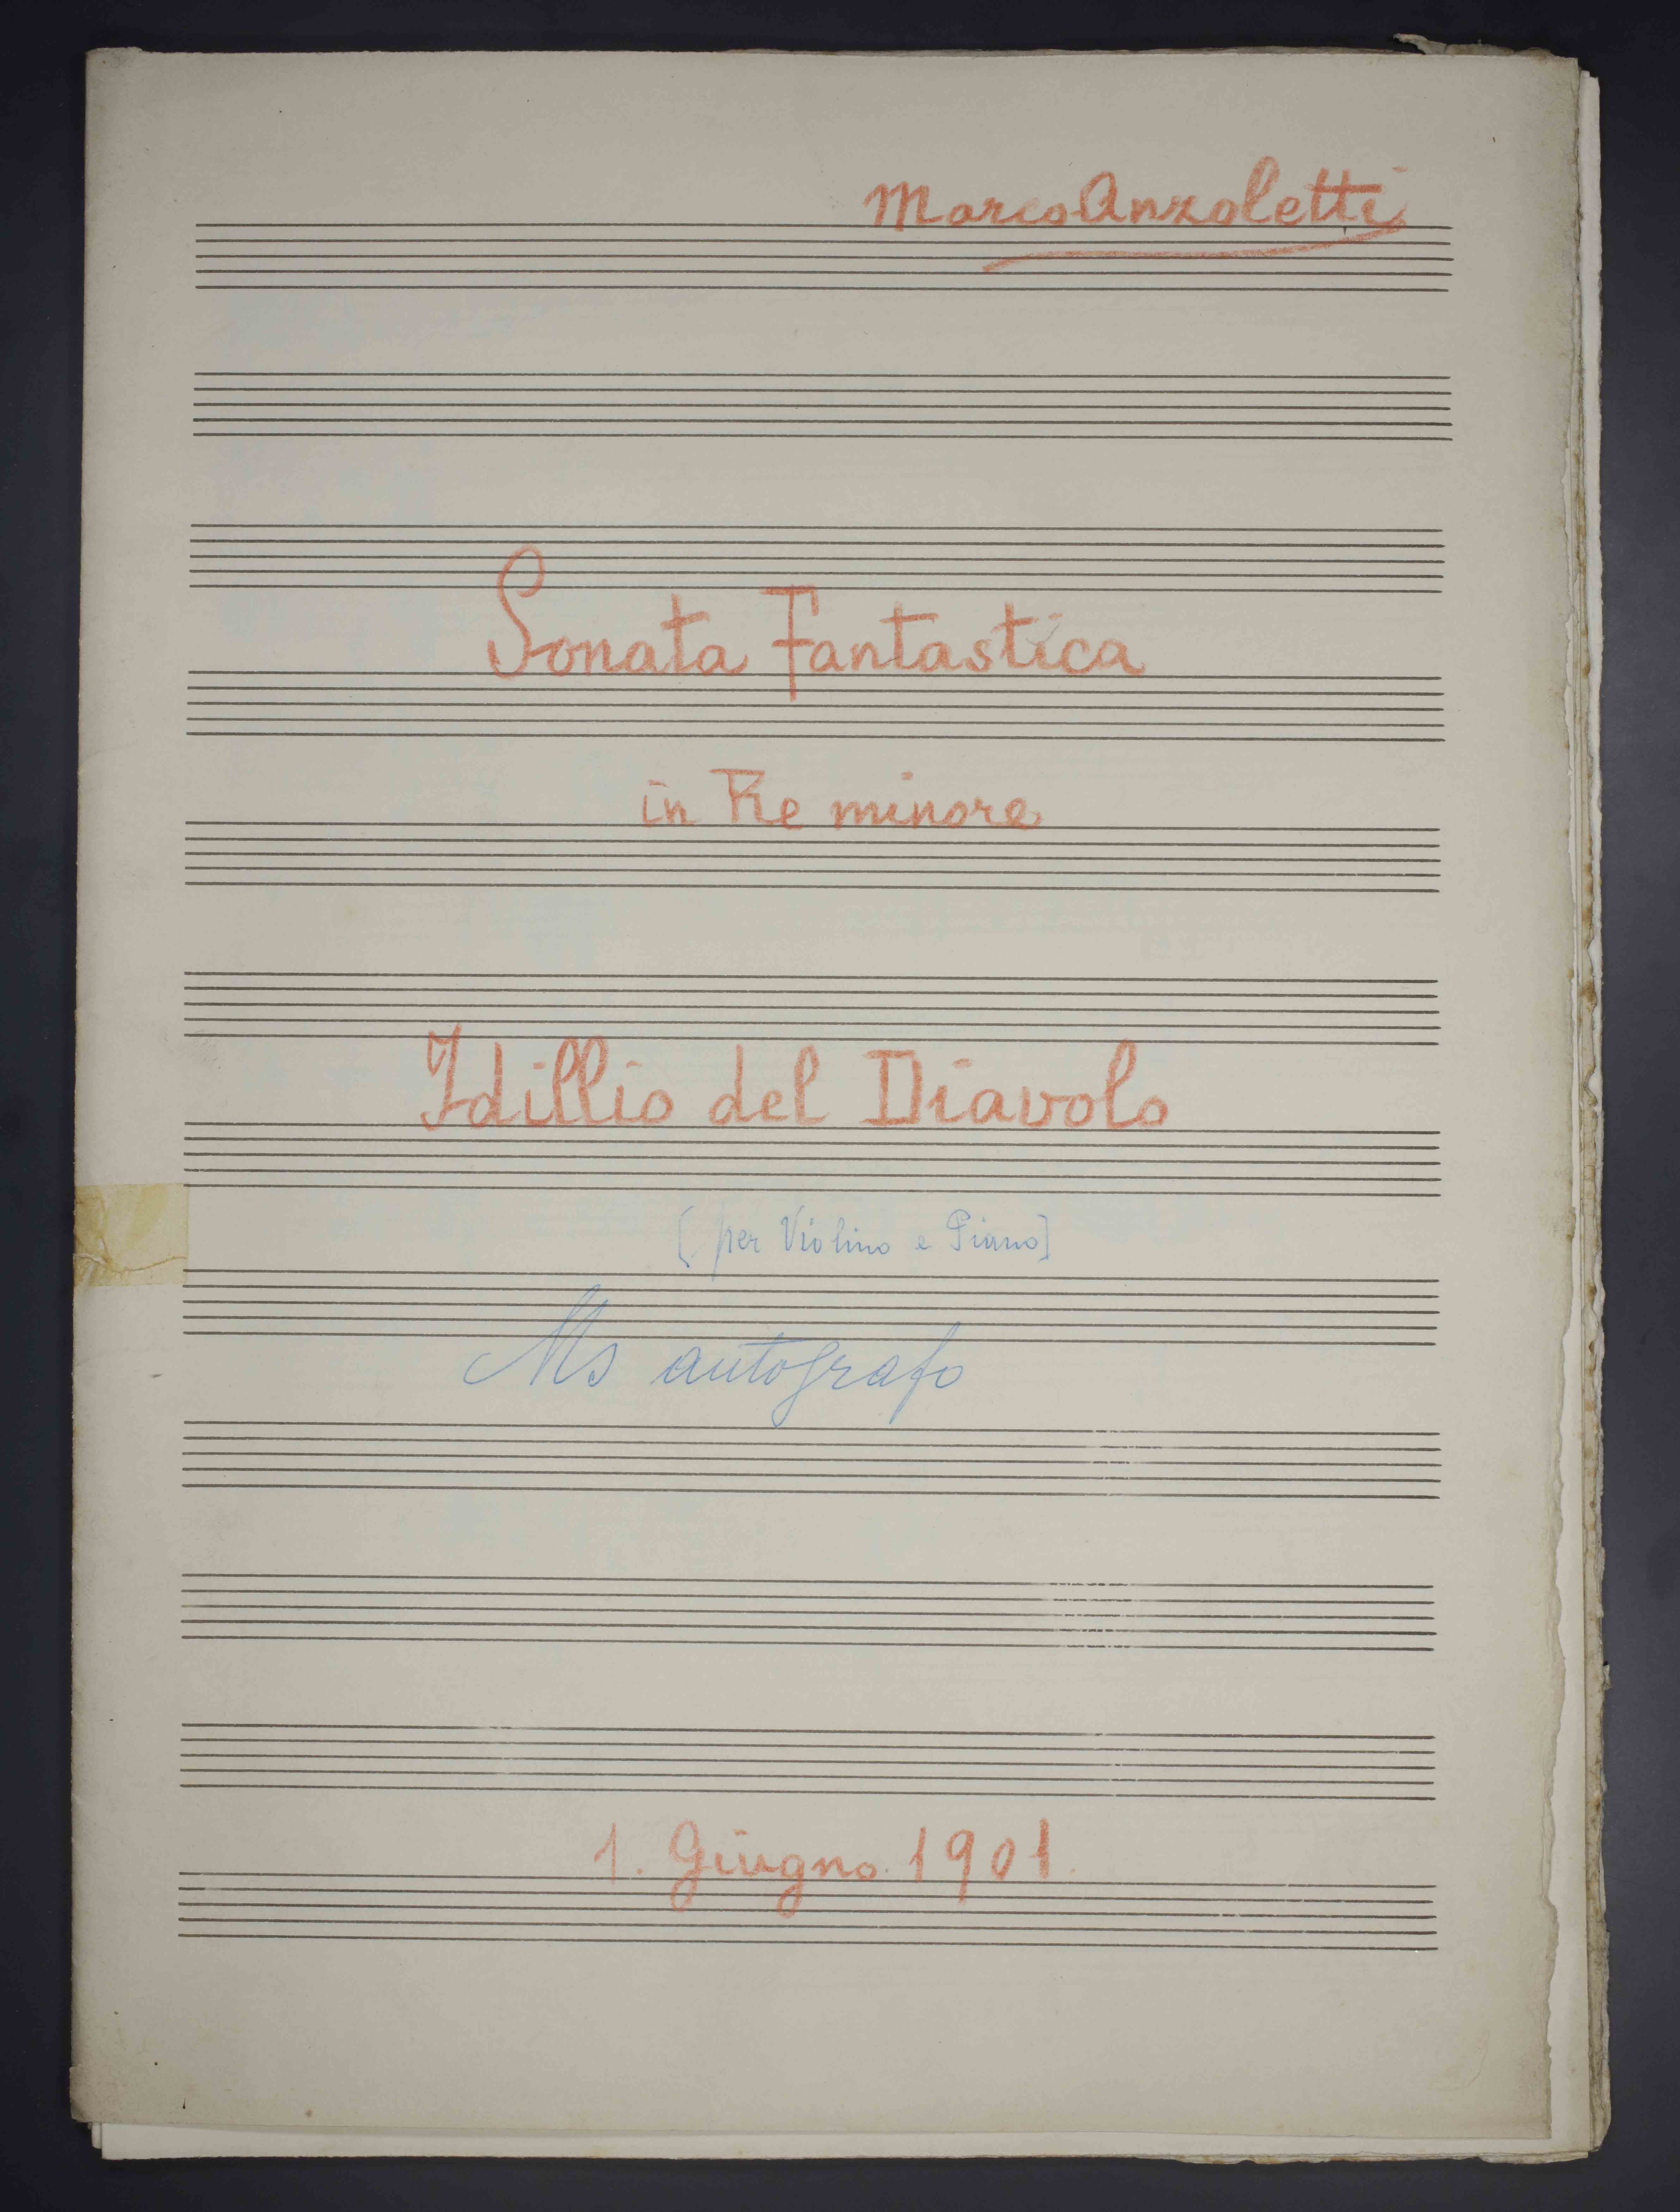 Marco Anzoletti
Sonata Fantastica
in Re minore
Idillio del Diavolo
[per Violino e Piano]
Ms autografo
1. Giugno 1901